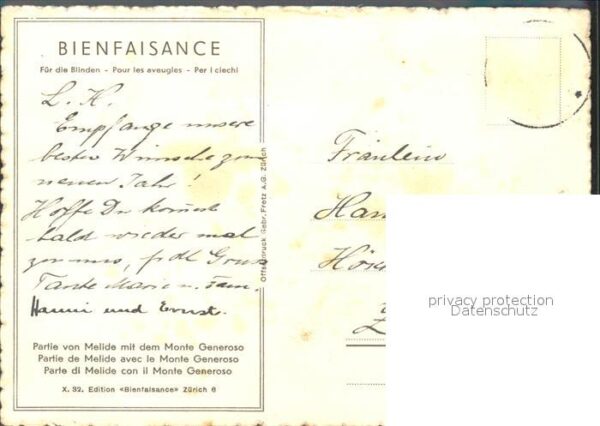 BIENFAISANCE
Für die Blinden - Pour les aveugles - Per i ciechi
L. H.
Empfange unsere
besten Wünsche zum
neuen Jahr!
Hoffe Du kommst
bald wieder mal
zu uns, Gruss
Tante Marie u. Fam.
Hanni und Ernst.
Partie von Melide mit dem Monte Generoso
Partie de Melide avec le Monte Generoso
Parte di Melide con il Monte Generoso
X. 32. Edition «Bienfaisance» Zürich 6
Offsetdruck Gebr. Fretz A.G. Zürich
Fräulein
Han
privacy protection
Datenschutz